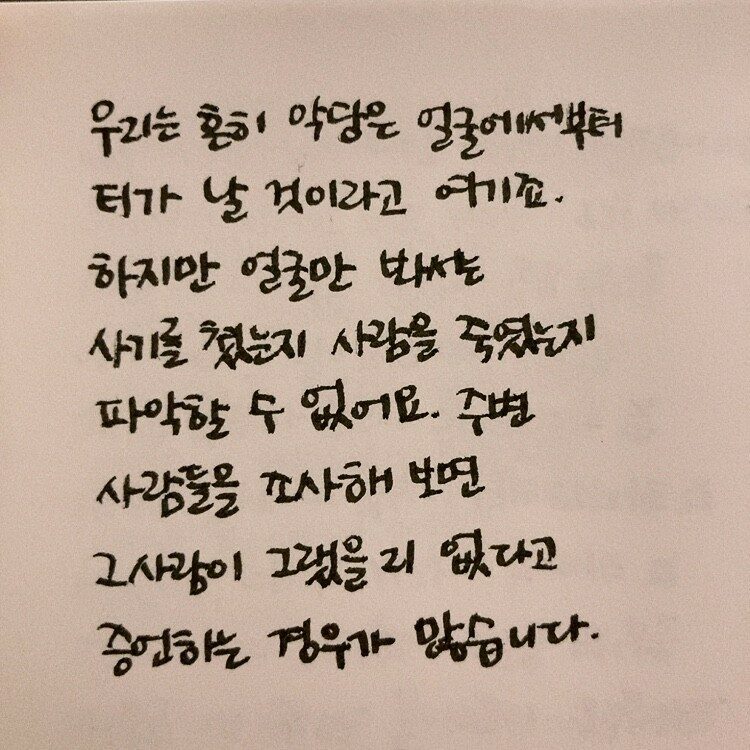 우리는 흔히 악당은 얼굴에서부터
터가 날 것이라고 여기죠.
하지만 얼굴만 봐서는
사기를 쳤는지 사람을 죽였는지
파악할 수 없어요. 주변
사람들을 조사해 보면
그사람이 그랬을 리 없다고
증언하는 경우가 많습니다.